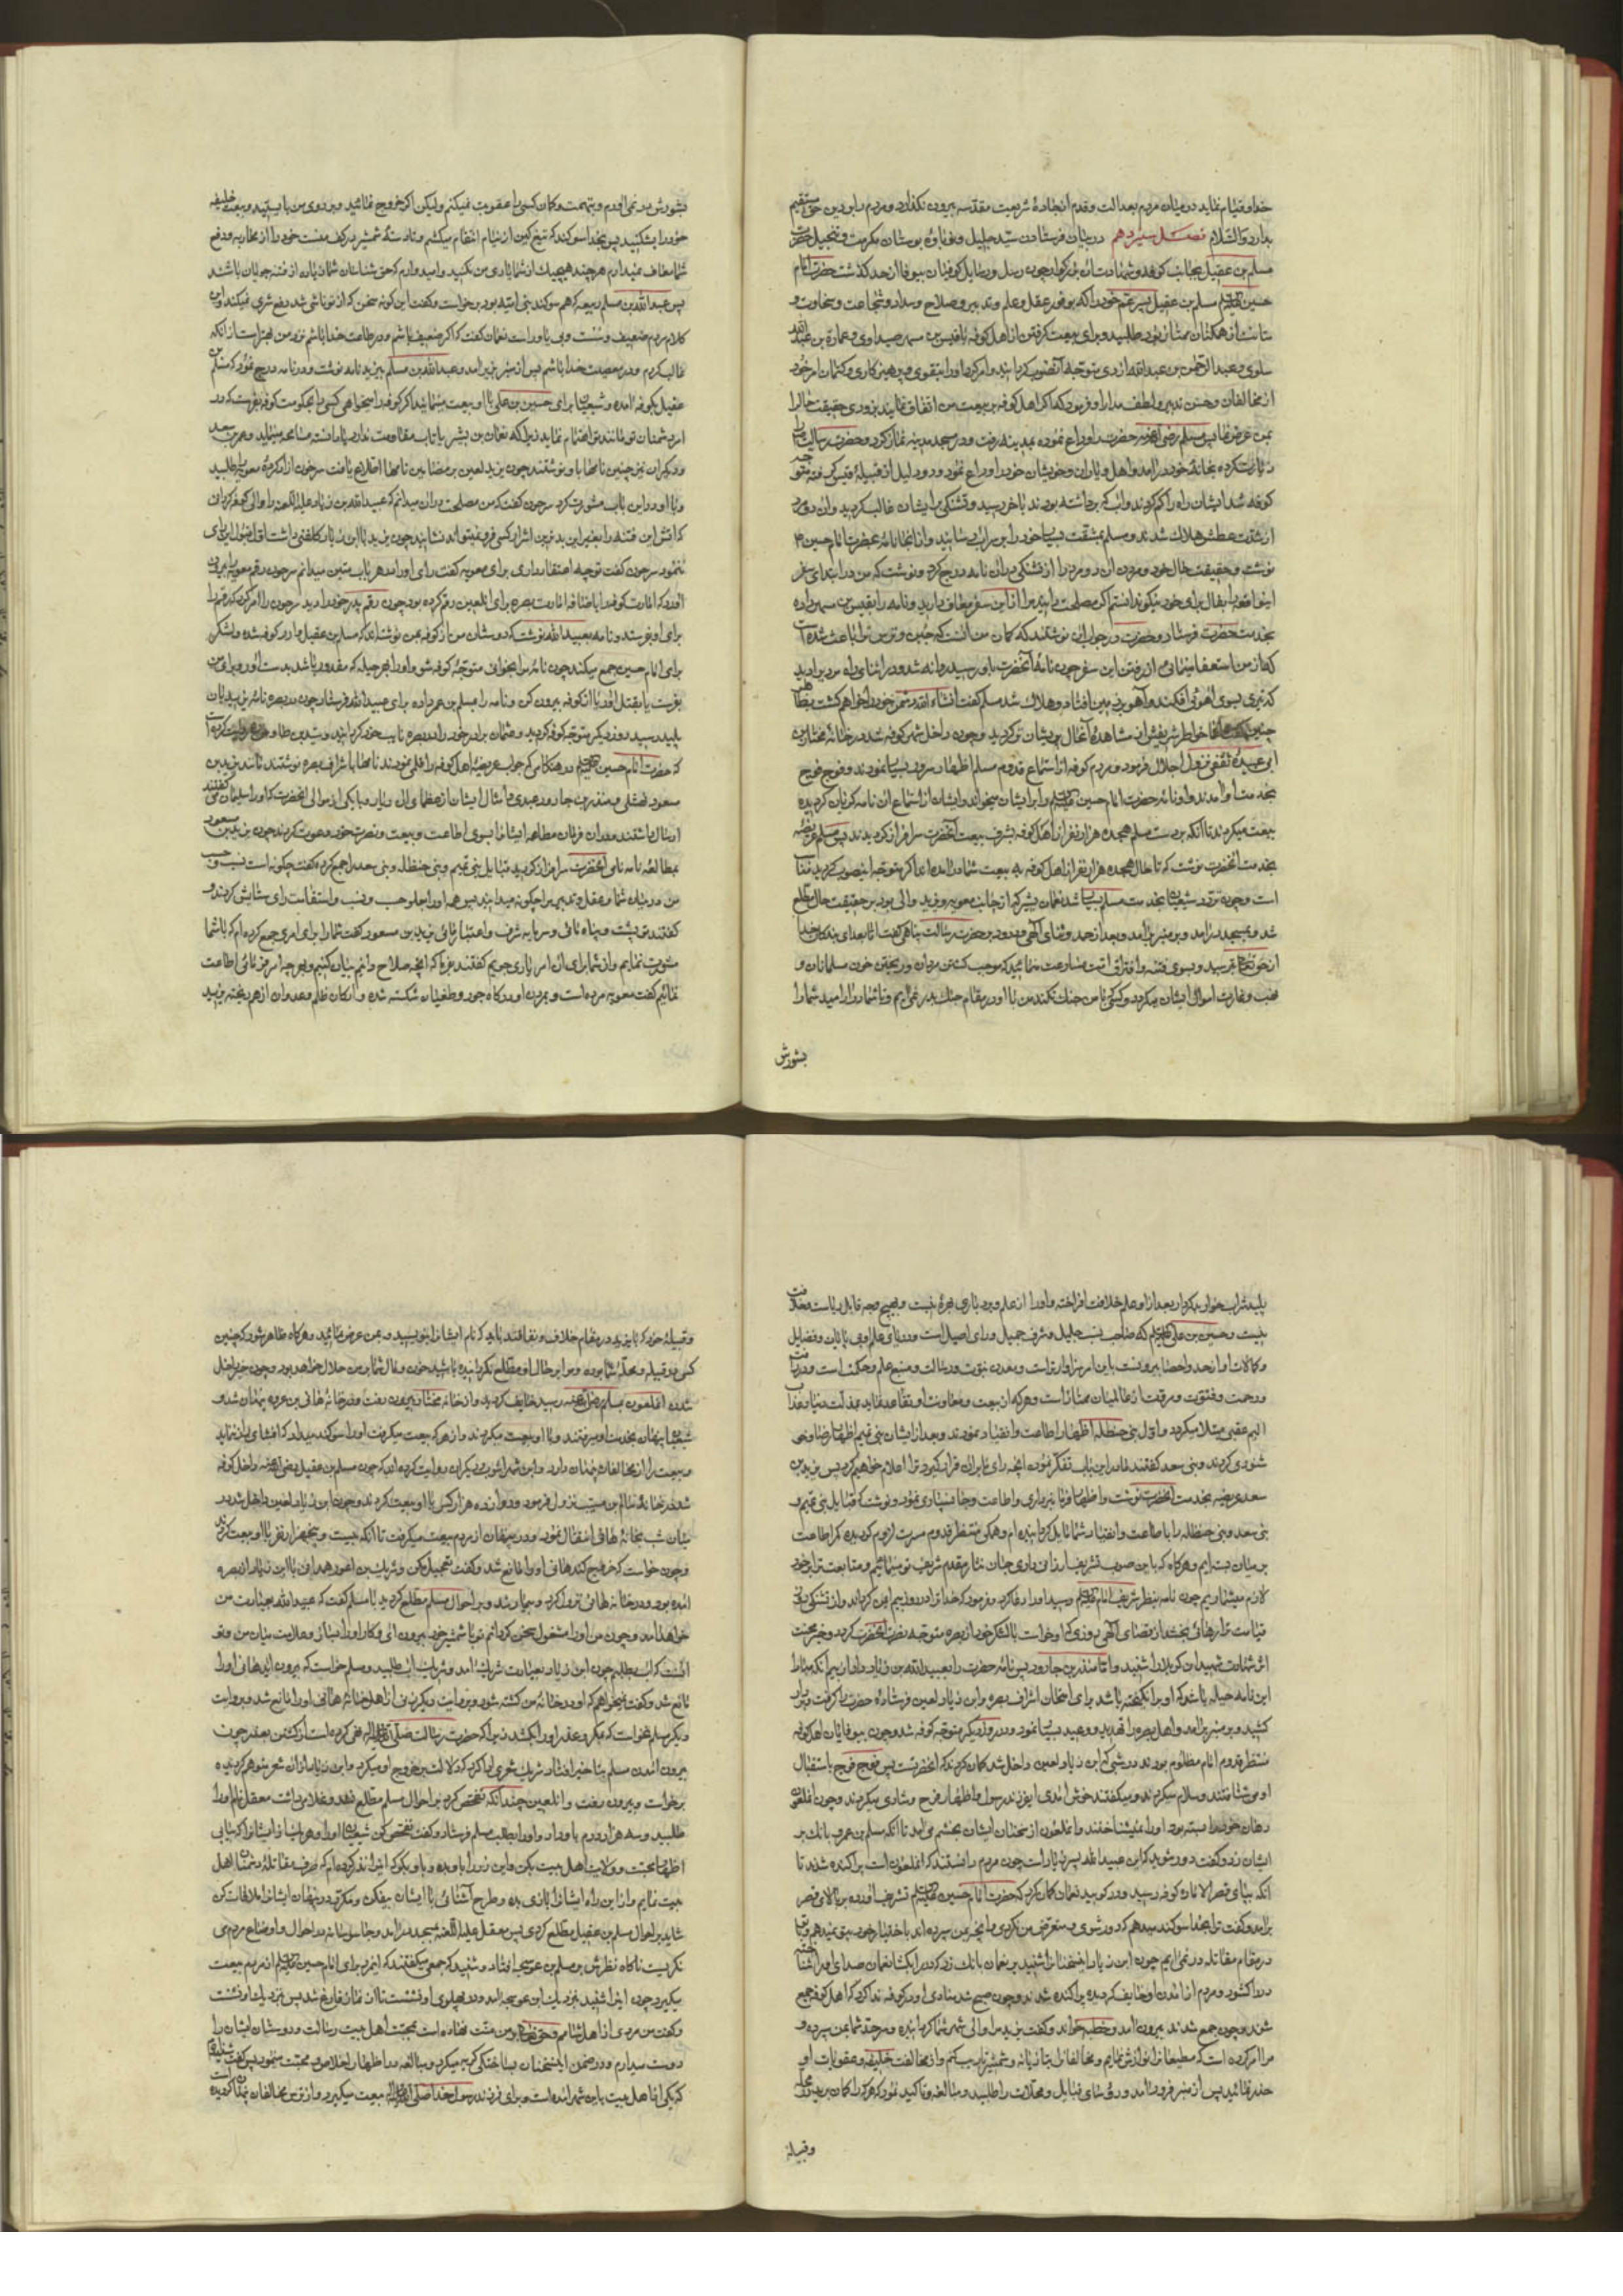 خدا و قیام نماید در میان مردم بعدالت و قدم از جادهٔ شریعت مقدسه بیرون نگذارد و مردم را بر دین حق مستقیم
بدارد والسلام فصل سیزدهم در بیان فرستادن سید جلیل
مسلم بن عقیل بجانب کوفه و چون رسل و رسایل کوفیان بیوفا از حد گذشت حضرت امام
حسین مسلم بن عقیل پسر عم خود را که بوفور عقل و علم و تدبیر و صلاح و سداد و شجاعت و سخاوت و
متانت از همگنان ممتاز بود طلبید و برای بیعت گرفتن از اهل کوفه با قیس بن مسهر صیداوی و عمارة بن عبد الله
سلولی و عبد الرحمن بن عبد الله ازدی متوجه آنصوب گردانید و امر کرد او را بتقوی و پرهیزکاری و کتمان امر خود
از مخالفان و حسن تدبیر و لطف مدارا و فرمود که اگر اهل کوفه بر بیعت من اتفاق نمایند بزودی حقیقت حال را
بمن عرض نما پس مسلم حضرت را وداع نموده بمدینه رفت و در مسجد مدینه نماز کرد و حضرت رسالت را
زیارت کرده بخانهٔ خود در آمد و اهل و یاران و خویشان خود را وداع نمود و دو دلیل از قبیلهٔ قیس گرفته متوجه
کوفه شد ایشان راه را گم کردند و آب که برداشته بودند باخر رسید و تشنگی بر ایشان غالب گردید و آن دو مرد
از شدت عطش هلاک شدند و مسلم بمشقت بسیار خود را بر سر آب رسانید و از آنجا نامه بحضرت امام حسین
نوشت و حقیقت حال خود و مردن آن دو مرد را از تشنگی در آن نامه درج کرد و نوشت که من در ابتدای سفر
بخدمت حضرت فرستاد و حضرت در جواب او نوشتند که گمان من آنست که جبن و ترس ترا باعث شده است
که از من استعفا مینمائی از رفتن این سفر چون نامهٔ آنحضرت باو رسید روانه شد و در اثنای راه مردیرا دید
که تیری بسوی آهوئی افکند و آهو بر زمین افتاد و هلاک شد مسلم گفت انشاء الله دشمن خود را خواهم کشت
ابی عبیدهٔ ثقفی نزول اجلال فرمود و مردم کوفه از استماع قدوم مسلم اظهار سرور بسیار نمودند و فوج فوج
بخدمت او آمدند و او نامهٔ حضرت امام حسین را بر ایشان میخواند و ایشان از استماع آن نامه گریان گردیده
بیعت میکردند تا آنکه بر دست مسلم هجده هزار نفر از اهل کوفه بشرف بیعت آنحضرت سرافراز گردیدند پس مسلم عریضه
بخدمت آنحضرت نوشت که تا حال هجده هزار نفر از اهل کوفه به بیعت شما در آمده‌اند اگر متوجه اینصوب گردید مناسب
است و چون تردد شیعیان بخدمت مسلم بسیار شد نعمان بشیر که از جانب معویه و یزید والی بود بر حقیقت حال مطلع
شد و بمسجد در آمد و بر منبر بر آمد و بعد از حمد و ثنای الهی و درود بر حضرت رسالت پناهی گفت اما بعد ای بندگان خدا
از حق تعالی بترسید و بسوی فتنه و افتراق امت مسارعت منمائید که موجب کشتن مردان و ریختن خون مسلمانان و
نهب و غارت اموال ایشان میگردد و کسی که با من جنگ نکند من با او در مقام جنگ بدر نمی‌آیم و تا شما را
بشورش
بشورش در نمی‌آورم و بتهمت و گمان کسی را عقوبت نمیکنم ولیکن اگر خروج نمائید و بر روی من بایستید و بیعت خلیفه
خود را بشکنید پس بخدا سوگند که تیغ کین از نیام انتقام میکشم و تا دستهٔ شمشیر در کف منست خود را از محاربه و دفع
شما معاف نمیدارم هر چند هیچیک از شما یاری من نکنید و امیدوارم که حق شناسان شما زیاده از فتنه جویان باشند
پس عبد الله بن مسلم ربیعه که هم سوگند بنی امیه بود برخواست و گفت این گونه سخن که از تو ناشی شد دفع شری نمیکند و این
کلام مردم ضعیف و سست و بی یاور است نعمان گفت که اگر ضعیف باشم و در طاعت خدا باشم نزد من بهتر است از آنکه
غالب گردم و در معصیت خدا باشم پس از منبر بزیر آمد و عبد الله بن مسلم بیزید نامه نوشت و در نامه درج نمود که مسلم بن
عقیل بکوفه آمده و شیعیان برای حسین بن علی با او بیعت مینمایند اگر کوفه را میخواهی کسی را بحکومت کوفه بفرست که در
امر دشمنان تو مانند تو اهتمام نماید زیرا که نعمان بن بشیر یا تاب مقاومت ندارد یا دانسته مسامحه مینماید و عمر بن سعد
و دیگران نیز چنین نامها باو نوشتند چون یزید لعین بر مضامین نامها اطلاع یافت سرجون آزاد کردهٔ معویه را طلبید
و با او در این باب مشورت کرد سرجون گفت که من مصلحت در آن میدانم که عبید الله بن زیاد علیه اللعنه را والی کوفه گردانی
که آتش این فتنه را بغیر این بدترین اشرار کسی فرو نمیتواند نشانید چون یزید را با ابن زیاد کلفتی داشت
ننمود سرجون گفت توجه اعتقاد داری برای معویه گفت رای او را در هر باب متین میدانم سرجون رقم معویه را بیرون
آورد که امارت کوفه را باضافهٔ امارت بصره برای آن لعین رقم کرده بود چون رقم پدر خود را دید سرجون را امر کرد که رقم را
برای او بفرستد و نامه بعبید الله نوشت که دوستان من از کوفه بمن نوشته‌اند که مسلم بن عقیل وارد کوفه شده و لشکر
برای امام حسین جمع میکند چون نامهٔ مرا بخوانی متوجه کوفه شو و او را بهر حیله که مقدور باشد بدست آور و برای من
بفرست یا بقتل آور یا از کوفه بیرون کن و نامه را بمسلم بن عمرو داده برای عبید الله فرستاد چون در بصره نامهٔ یزید بآن
پلید رسید روز دیگر متوجه کوفه گردید و عثمان برادر خود را در بصره نایب خود گردانید و سید بن طاوس روایت کرده
که حضرت امام حسین در هنگامی که جواب عریضهٔ اهل کوفه را قلمی نمودند نامها باشراف بصره نوشتند مانند یزید بن
مسعود نهشلی و منذر بن جارود عبدی و امثال ایشان از عظمای آن دیار و با یکی از موالی آنحضرت که او را سلیمان میگفتند
ارسال داشتند و در آن فرمان مطاعه ایشانرا بسوی اطاعت و بیعت و نصرت خود دعوت کردند چون یزید بن مسعود
بمطالعهٔ نامه نامی آنحضرت سرافراز گردید قبایل بنی تمیم و بنی حنظله و بنی سعد را جمع کرده گفت چگونه است نسب و حسب
من در میان شما و عقل و تدبیر مرا چگونه میدانید پس همه او را بعلو حسب و نسب و استقامت رای ستایش کردند و
گفتند تو پشت و پناه مائی و سرمایه شرف و اعتبار مائی یزید بن مسعود گفت شما را برای امری جمع کرده‌ام که با شما
مشورت نمایم و از شما برای آن امر یاری جویم گفتند بفرما که آنچه صلاح دانیم بیان کنیم و بهر چه امر فرمائی اطاعت
نمائیم گفت معویه مرده است و بمردن او درگاه جور و طغیان شکسته شده و ارکان ظلم و عدوان از هم ریخته و یزید
پلید شراب خوار بدکردار بعد از او علم خلافت افراخته و او را از علم و بردباری بهرهٔ نیست و بهیچ وجه قابل ریاست و خلافت
نیست و حسین بن علی که صاحب نسب جلیل و شرف جمیل و رای اصیل است و دریای علم او بی پایان و فضایل
و کمالات او از حد و احصا بیرونست باین امر سزاوارتر است و معدن نبوت و رسالت و منبع علم و حکمت است و در رأفت
و رحمت و فتوت و مروت از عالمیان ممتاز است و هر که از بیعت و معاونت او تقاعد نماید بمذلت دنیا و عذاب
الیم عقبی مبتلا میگردد و اول بنی حنظله اظهار اطاعت و انقیاد نمودند و بعد از ایشان بنی تمیم اظهار رضا و خوش
نودی کردند و بنی سعد گفتند ما در این باب تفکر نموده آنچه رای ما بر آن قرار گیرد ترا اعلام خواهیم کرد پس یزید بن
مسعود عریضه بخدمت آنحضرت نوشت و اظهار فرمانبرداری و اطاعت و جانسپاری نمود و نوشت که قبایل بنی تمیم و
بنی سعد و بنی حنظله را باطاعت و انقیاد شما مایل گردانیده‌ام و همگی منتظر قدوم مسرت لزوم گردیده کمر اطاعت
بر میان بسته‌ایم و هرگاه که باین صوب تشریف ارزانی داری جان نثار مقدم شریف تو مینمائیم و متابعت ترا بر خود
لازم میشماریم چون نامه بنظر شریف امام رسید او را دعا کرد و فرمود که خدا ترا در روز بیم ایمن گرداند و از تشنگی روز
قیامت ترا رهائی بخشد از قضای الهی روزی که او خواست با لشکر خود از بصره متوجه نصرت آنحضرت گردد خبر محنت
اثر شهادت شهیدان کربلا را شنید و اما منذر بن جارود پس نامهٔ حضرت را بعبید الله بن زیاد داد از بیم آنکه مبادا
این نامه حیله باشد که او برانگیخته باشد برای امتحان اشراف بصره و ابن زیاد لعین فرستادهٔ حضرت را گرفت و بردار
کشید و بر منبر بر آمد و اهل بصره را تهدید و وعید بسیار نمود و روز دیگر متوجه کوفه شد و چون بیوفایان اهل کوفه
منتظر قدوم امام مظلوم بودند در شبی که ابن زیاد لعین داخل شد گمان کردند که آنحضرتست پس فوج فوج باستقبال
او می‌شتافتند و سلام میکردند و میگفتند خوش آمدی ای فرزند رسول خدا و اظهار فرح و شادی میکردند و چون آن ملعون
دهان خود را بسته بود او را نمیشناختند و آن ملعون از سخنان ایشان بخشم می‌آمد تا آنکه مسلم بن عمرو بانگ بر
ایشان زد و گفت دور شوید که این عبید الله پسر زیاد است چون مردم دانستند که آن ملعون است پراکنده شدند تا
آنکه بپای قصر الاماره کوفه رسید و در کوبید نعمان گمان کرد که حضرت امام حسین تشریف آورده بر بالای قصر
بر آمد و گفت ترا بخدا سوگند میدهم که دور شوی و متعرض من نگردی که آنچه بمن سپرده‌اند باختیار خود بتو نمیدهم و با تو
در مقام مقاتله در نمی‌آیم چون ابن زیاد این سخنانرا شنید بر نعمان بانگ زد که در را بگشا نعمان صدای او را شناخته
در را گشود و مردم از آمدن او خایف گردیده پراکنده شدند و چون صبح شد منادی او در کوفه ندا کرد که اهل کوفه جمع
شوند و چون جمع شدند بیرون آمد و خطبه خواند و گفت یزید مرا والی شهر شما گردانیده و سرحد شما بمن سپرده و
مرا امر کرده است که مطیعانرا نوازش نمایم و مخالفانرا بتازیانه و شمشیر تأدیب کنم و از مخالفت خلیفه و عقوبات او
حذر نمائید پس از منبر فرود آمد و رؤسای قبایل و محلات را طلبید و مبالغه و تاکید نمود که هر که را گمان برید در محله
وقبیلهٔ
و قبیلهٔ خود که با یزید در مقام خلاف و نفاقند باید که نام ایشانرا بنویسید و بمن عرض نمائید و هرگاه ظاهر شود که چنین
کسی در قبیله و محلهٔ شما بوده و مرا بر حال او مطلع نگردانیده باشید خون و مال شما بر من حلال خواهد بود و چون خبر داخل
شدن آن ملعون بمسلم رسید خایف گردید و از خانه مختار بیرون رفت و در خانهٔ هانی بن عروه پنهان شد و
شیعیان پنهان بخدمت او میرفتند و با او بیعت میکردند و از هر که بیعت میگرفت او را سوگند میداد که افشای راز ننماید
و بیعت را از مخالفان پنهان دارد و ابن شهر آشوب و دیگران روایت کرده‌اند که چون مسلم بن عقیل داخل کوفه
شد در خانهٔ سالم بن مسیب نزول فرمود و دوازده هزار کس با او بیعت کردند و چون ابن زیاد لعین داخل شد در
میان شب بخانهٔ هانی انتقال نمود و در پنهان از مردم بیعت میگرفت تا آنکه بیست و پنج هزار نفر با او بیعت کردند
و چون خواست که خروج کند هانی او را مانع شد و گفت تعجیل مکن و شریک بن اعور همدانی با ابن زیاد از بصره
آمده بود و در خانهٔ هانی نزول کرد و بیمار شد و بر احوال مسلم مطلع گردید با مسلم گفت که عبید الله بعیادت من
خواهد آمد و چون من او را مشغول سخن گردانم تو با شمشیر خود بیرون آی و کار او را بساز و علامت میان من و تو
آنست که آب بطلبم چون ابن زیاد بعیادت شریک آمد و شریک آب طلبید و مسلم خواست که بیرون آید هانی او را
مانع شد و گفت نمیخواهم که او در خانهٔ من کشته شود و بروایت دیگر زنی از اهل خانهٔ هانی او را مانع شد و بروایت
دیگر مسلم نخواست که بمکر و غدر او را بکشد زیرا که حضرت رسالت نهی کرده است از کشتن بعذر چون
بیرون آمدن مسلم بتاخیر افتاد شریک شعری ادا کرد که دلالت بر خروج او میکرد و ابن زیاد از آن شعر متوهم گردیده
برخواست و بیرون رفت و آن لعین چندانکه تفحص کرد بر احوال مسلم مطلع نشد و غلامی داشت معقل نام او را
طلبید و سه هزار درم باو داد و او را بطلب مسلم فرستاد و گفت تفحص کن شیعیان او را و هر یک از ایشانرا که بیابی
اظهار محبت و ولایت اهل بیت بکن و این زر را باو بده و باو بگو که اینرا نذر کرده‌ام که صرف مقاتلهٔ دشمنان اهل
بیت نمایم و از این راه ایشانرا بازی بده و طرح آشنائی با ایشان بیفکن و مکرر در پنهان ایشانرا ملاقات کن
شاید بر احوال مسلم بن عقیل مطلع گردی پس معقل علیه اللعنه بمسجد در آمد و جاسوسانه در احوال و اوضاع مردم می
نگریست ناگاه نظرش بر مسلم بن عوسجه افتاد و شنید که جمعی میگفتند که اینمرد برای امام حسین از مردم بیعت
میگیرد چون اینرا شنید بنزدیک ابن عوسجه آمد و در پهلوی او نشست تا از نماز فارغ شد پس نزدیک او نشست
و گفت من مردی از اهل شامم و حق تعالی بر من منت نهاده است بمحبت اهل بیت رسالت و دوستان ایشان را
دوست میدارم و در ضمن این سخنان بساختگی گریه میکرد و مبالغه در اظهار اخلاص و محبت مینمود پس گفت شنیده‌ام
که یکی از اهل بیت باین شهر آمده است و برای فرزند رسول خدا بیعت میگیرد و از ترس مخالفان پنهان گردیده